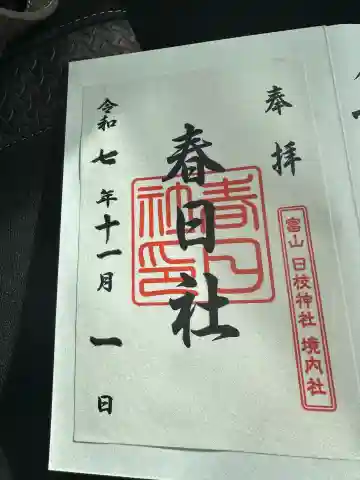 奉拝
富山 日枝神社 境内社
春日社
春日社印
令和七年十一月一日